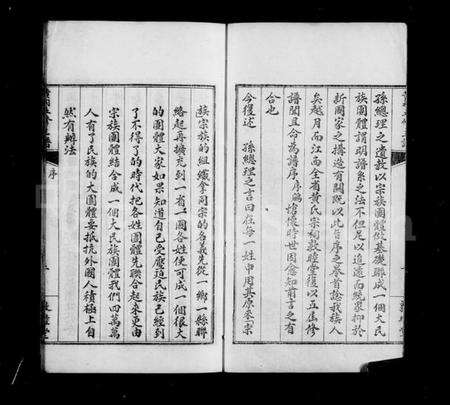 孫總理之遺教以宗族團體作基礎聯成一個大民
族團體謂明譜系之法不但足以追遠而統眾抑於
新國家之搆造有關既以此旨序之卷首諗我族人
矣越月而江西全省黃氏宗祠敦睦堂復以五屆修
譜聞並命為譜序序
合也
今復述　孫總理之言曰在每一姓中用其原來宗
族宗族的組織拿同宗的名義先從一鄉一縣聯
絡起再擴充到一省一國各姓便可成一個很大
的團體大家如果知道自己受壓迫民族已經到
了不得了的時代把各姓團體先聯合起來更由
宗族團體結合成一個大民族團體我們四萬萬
人有了民族的大團體要抵抗外國人積極上自
然有辦法
序